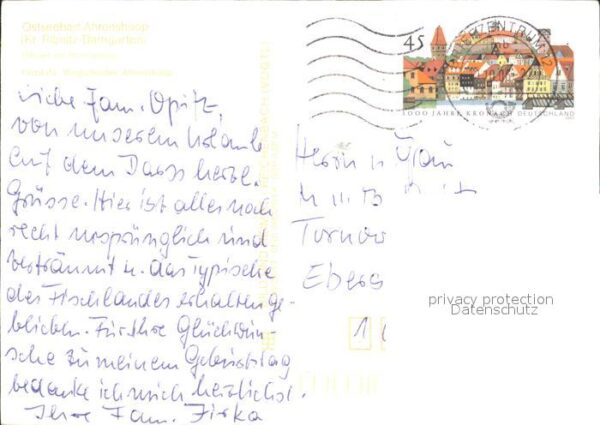 Ostseebad Ahrenshoop
(Kr. Ribnitz-Damgarten)
Liebe Fam. Opitz,
von unserem Urlaub
auf dem Darss herzl.
Grüsse. Hier ist alles noch
recht ursprünglich und
verträumt u. das typische
des Fischlandes erhalten ge-
blieben. Für Ihre Glückwün-
sche zu meinem Geburtstag
bedanke ich mich herzlichst.
Ihre Fam. Zirka
45
1000 JAHRE KRONACH DEUTSCHLAND
BRIEFZENTRUM
Herrn u. Frau
Turnow
Ebers
1
privacy protection
Datenschutz